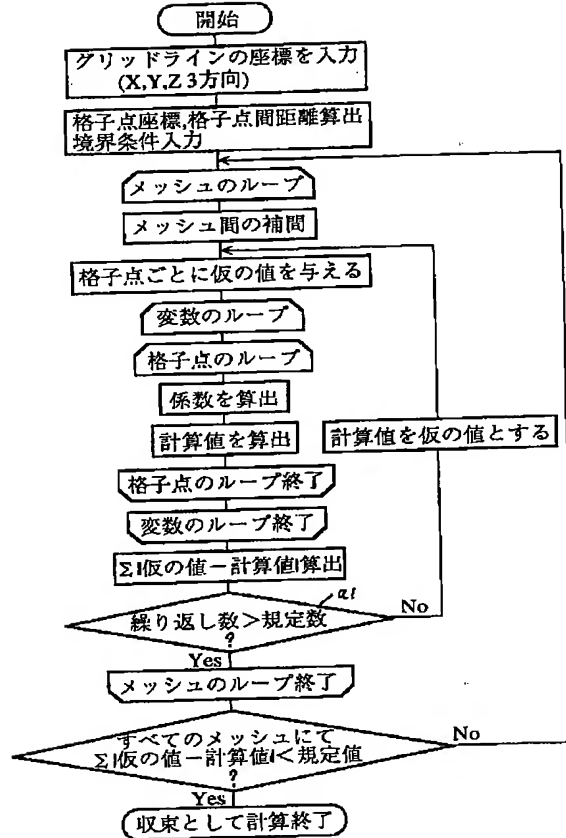 開始
グリッドラインの座標を入力
(X,Y,Z 3方向)
格子点座標,格子点間距離算出
境界条件入力
メッシュのループ
メッシュ間の補間
格子点ごとに仮の値を与える
変数のループ
格子点のループ
係数を算出
計算値を算出
計算値を仮の値とする
格子点のループ終了
変数のループ終了
Σ|仮の値−計算値|算出
a1
繰り返し数>規定数
?
No
Yes
メッシュのループ終了
すべてのメッシュにて
Σ|仮の値−計算値|<規定値
?
No
Yes
収束として計算終了